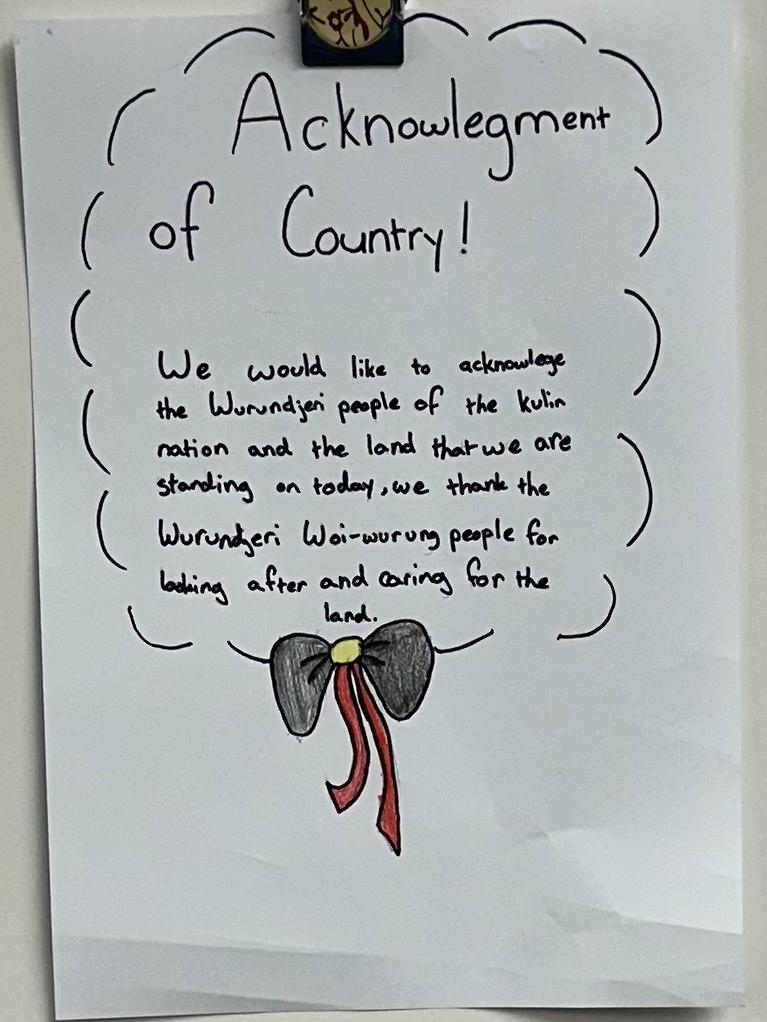 Acknowlegment
of Country!
We would like to acknowlege
the Wurundjeri people of the kulin
nation and the land that we are
standing on today, we thank the
Wurundjeri Woi-wurung people for
looking after and caring for the
land.